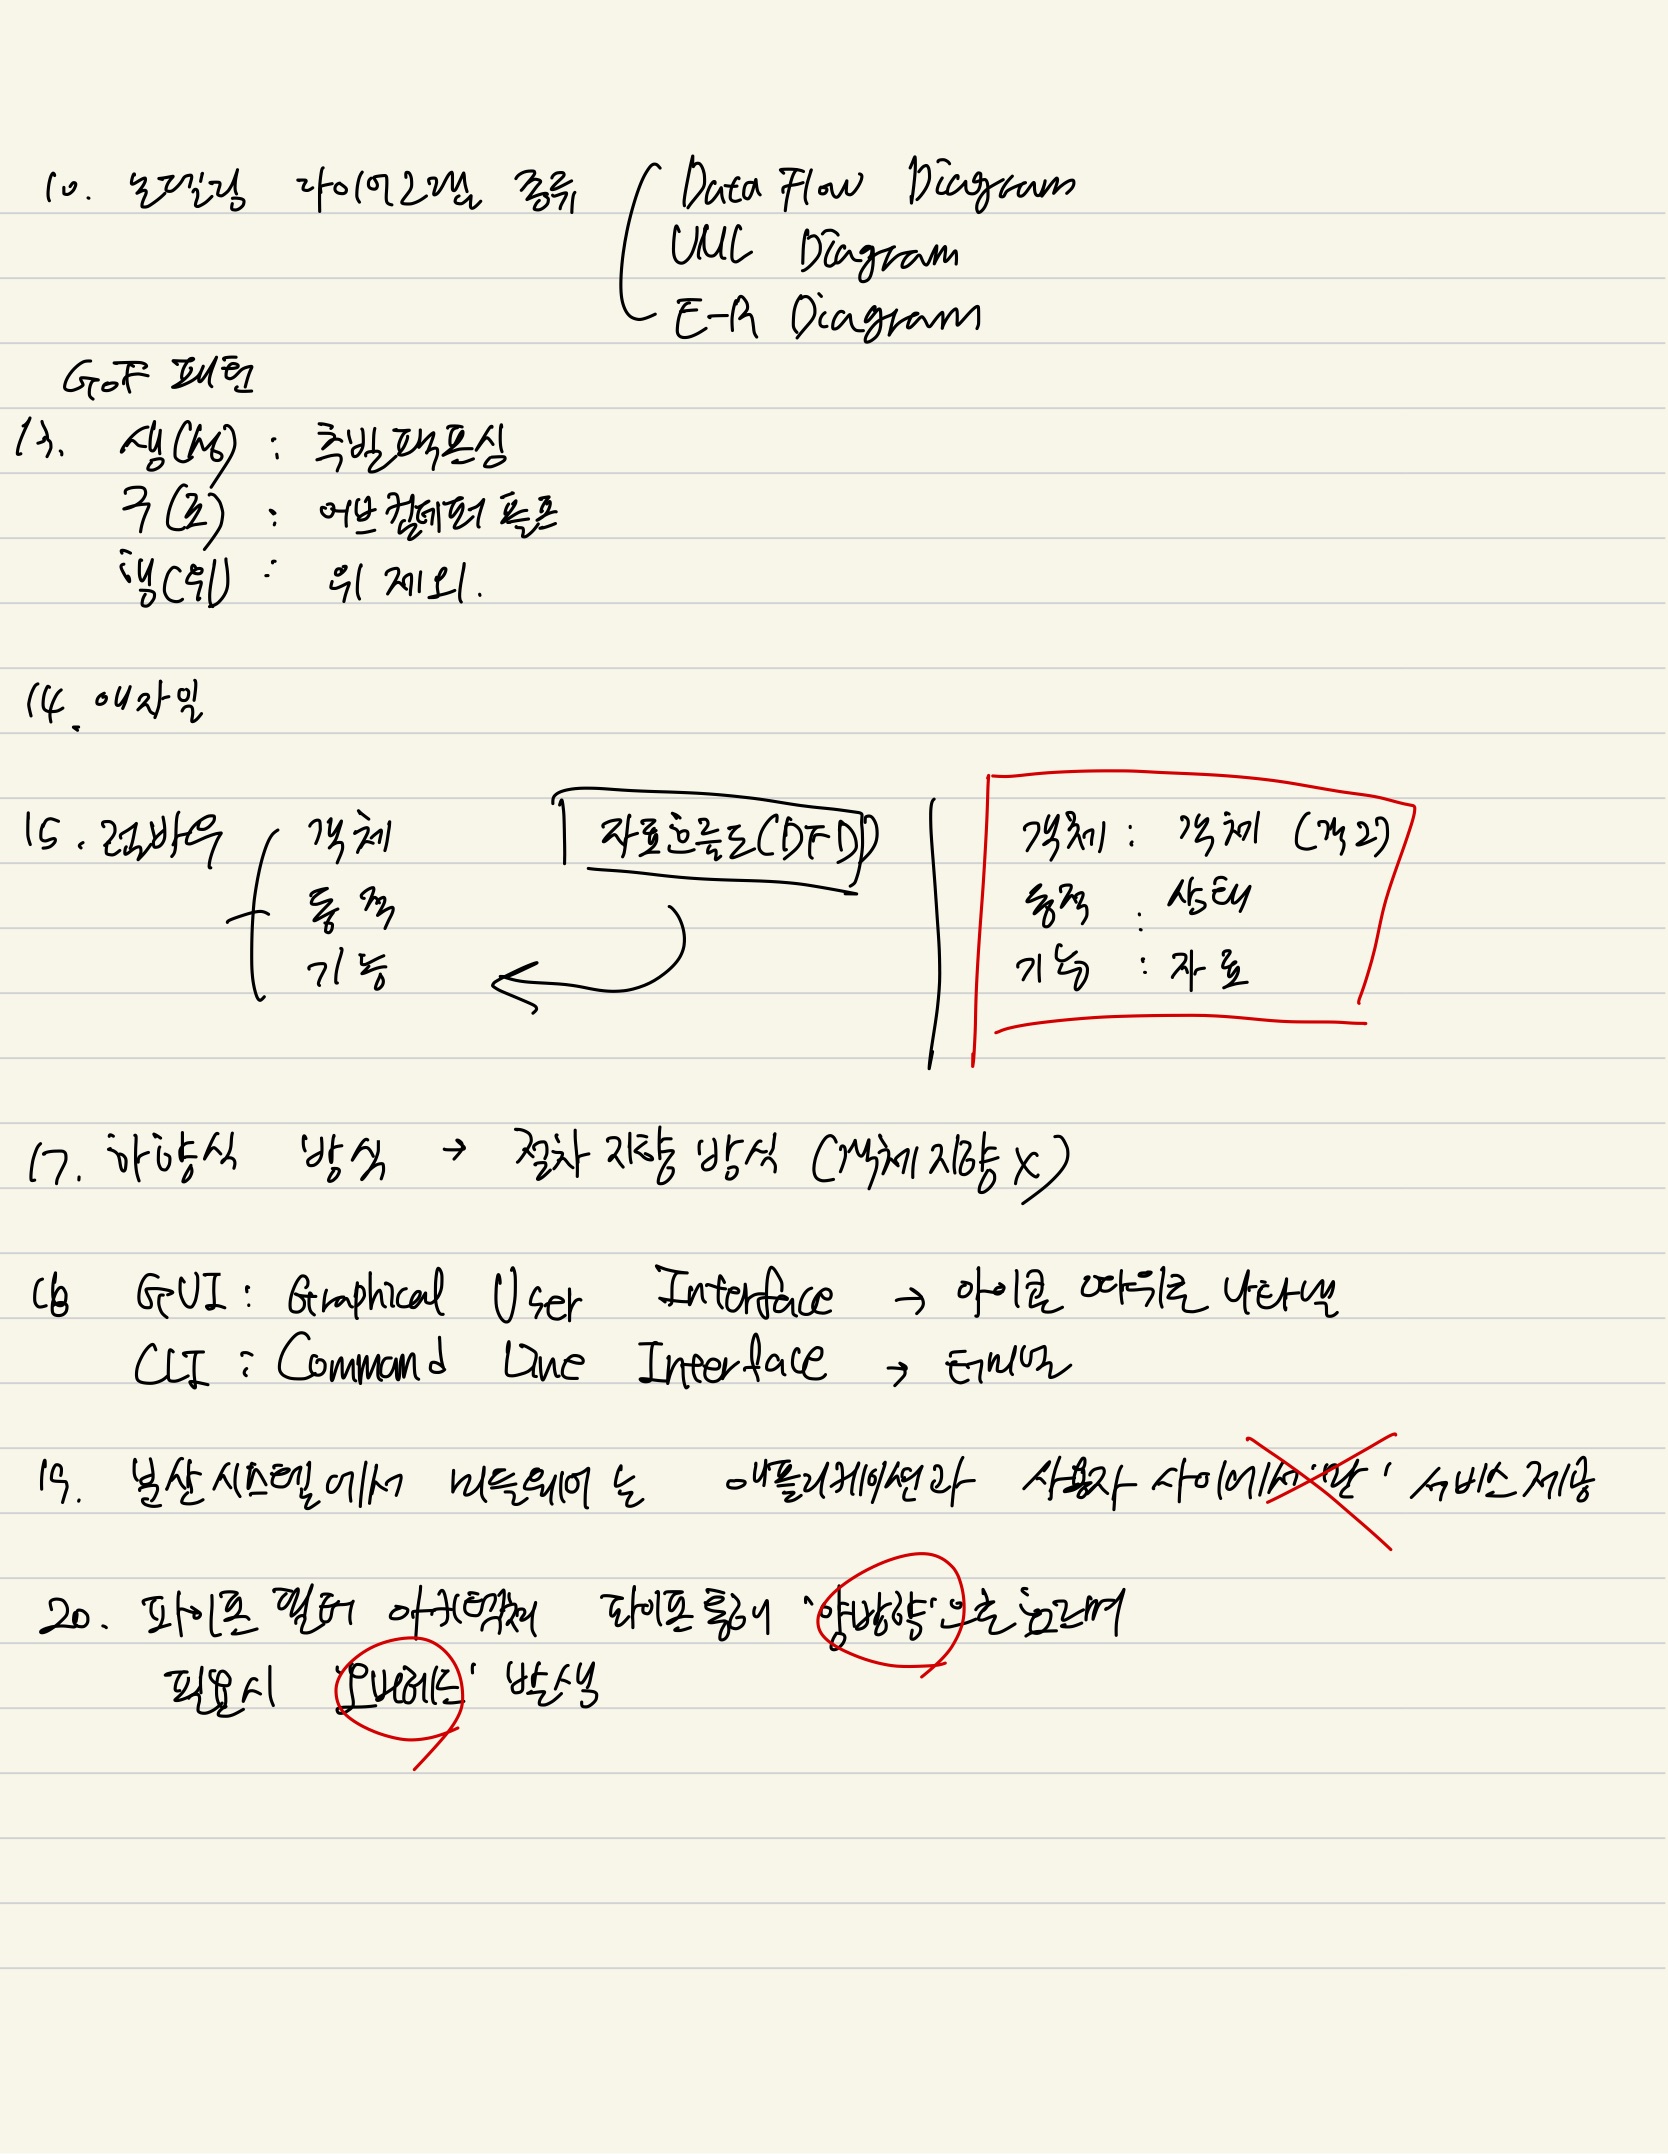 10. 모델링 다이어그램 종류 Data Flow Diagram
UML Diagram
E-R Diagram
GoF 패턴
13. 생(성) : 추빌팩프싱
구(조) : 어브컴데퍼플프
행(위) : 위 제외.
14. 애자일
15. 럼바우 객체 자료흐름도(DFD) 객체 : 객체 (객2)
동적 동적 : 상태
기능 기능 : 자료
17. 하향식 방식 → 절차 지향 방식 (객체 지향 X)
18 GUI : Graphical User Interface → 아이콘 따위로 나타냄
CLI : Command Line Interface → 터미널
19. 분산 시스템에서 미들웨어는 애플리케이션과 사용자 사이에서 '만' 서비스 제공
20. 파이프 필터 아키텍처 파이프 통해 '양방향'으로 흐르며
필요시 '오버헤드' 발생